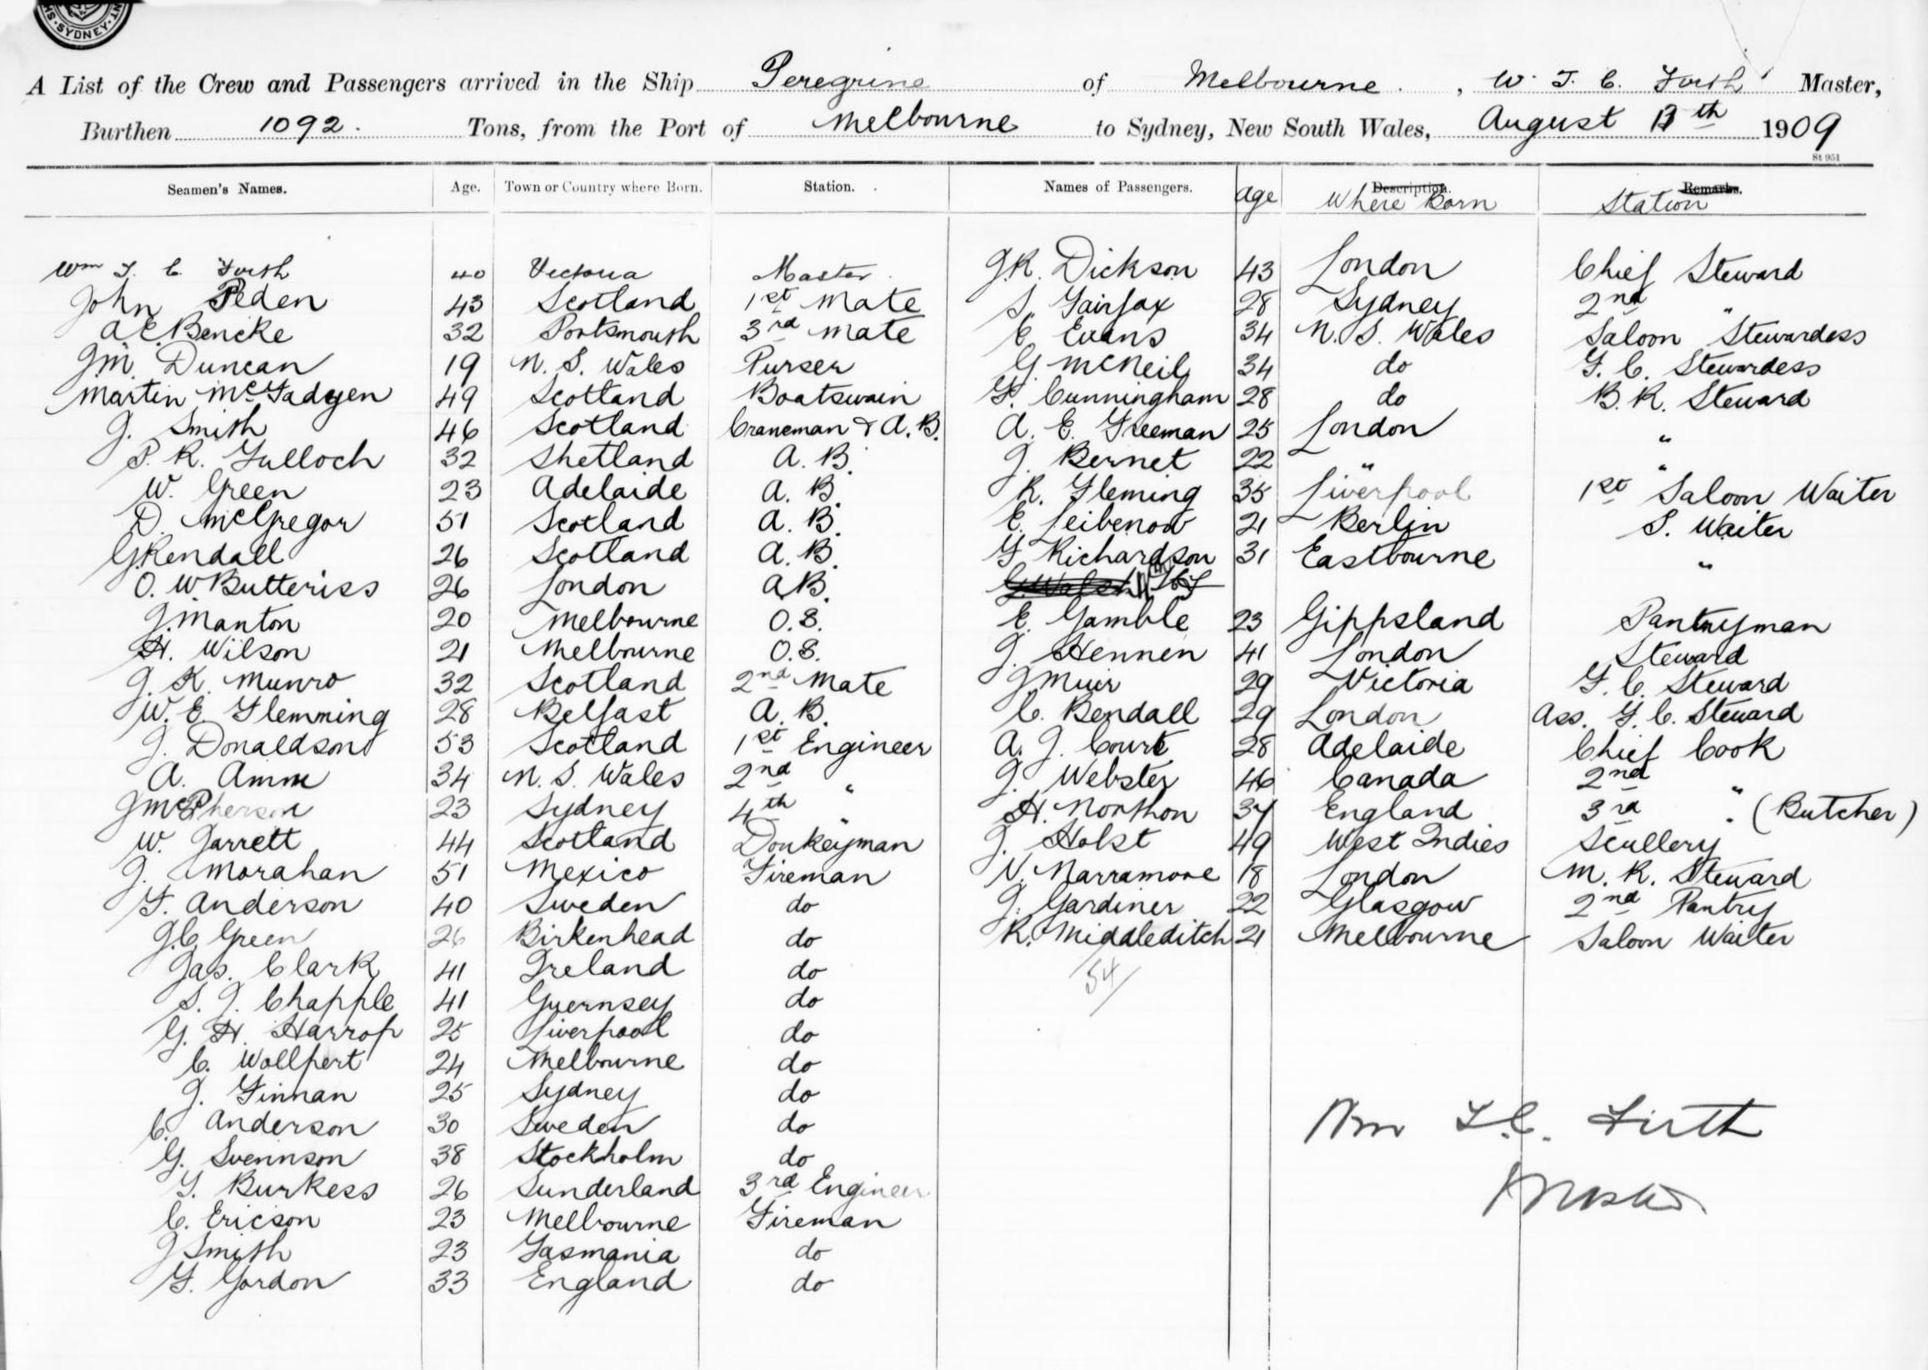 SYDNEY
A List of the Crew and Passengers arrived in the Ship Peregrine of Melbourne, W. T. C. Firth Master,
Burthen 1092. Tons, from the Port of Melbourne to Sydney, New South Wales, August th 1909
St 951
Seamen's Names. Age. Town or Country where Born. Station. Names of Passengers. Age Description. Where Born Remarks. Station
Wm T. C. Firth 40 Victoria Master J.R. Dickson 43 London Chief Steward
John Peden 43 Scotland 1st Mate S. Fairfax 28 Sydney 2nd "
A.E. Bencke 32 Portsmouth 3rd Mate E. Evans 34 N. S. Wales Saloon Stewardess
J.M. Duncan 19 N. S. Wales Purser G McNeil 34 do F. C. Stewardess
Martin McFadyen 49 Scotland Boatswain F. Cunningham 28 do B. R. Steward
J. Smith 46 Scotland Craneman & A. B. A. E. Freeman 25 London "
P. R. Tulloch 32 Shetland A. B. J. Bernet 22 " "
W. Green 23 Adelaide A. B. R. Fleming 35 Liverpool 1st Saloon Waiter
D. McGregor 51 Scotland A. B. E. Leibenow 21 Berlin S. Waiter
G Rendall 26 Scotland A. B. F Richardson 31 Eastbourne "
O. W. Butteriss 26 London A.B.
J. Manton 20 Melbourne O.S. E. Gamble 23 Gippsland Pantryman
H. Wilson 21 Melbourne O.S. J. Hennen 41 London Steward
J. K. Munro 32 Scotland 2nd Mate J Muir 29 Victoria F. C. Steward
W. E. Flemming 28 Belfast A. B. C. Bendall 29 London Ass. F. C. Steward
J. Donaldson 53 Scotland 1st Engineer A. J. Court 28 Adelaide Chief Cook
A. Amm 34 N. S. Wales 2nd " J. Webster 46 Canada 2nd "
J McPherson 23 Sydney 4th " H. Northon 37 England 3rd " (Butcher)
W. Jarrett 44 Scotland Donkeyman J. Holst 49 West Indies Scullery
J. Morahan 51 Mexico Fireman N. Narramore 18 London M. R. Steward
F. Anderson 40 Sweden do J. Gardiner 22 Glasgow 2nd Pantry
J.C Green 26 Birkenhead do R. Middleditch 21 Melbourne Saloon Waiter
Jas. Clark 41 Ireland do 54/
S. J. Chapple 41 Guernsey do
G. H. Harrop 25 Liverpool do
C. Wollpert 24 Melbourne do
J. Finnan 25 Sydney do
C. Anderson 30 Sweden do
G. Svennson 38 Stockholm do
T. Burkess 26 Sunderland 3rd Engineer
C. Ericson 23 Melbourne Fireman
J Smith 23 Tasmania do
F. Gordon 33 England do
Wm T. C. Firth
Master